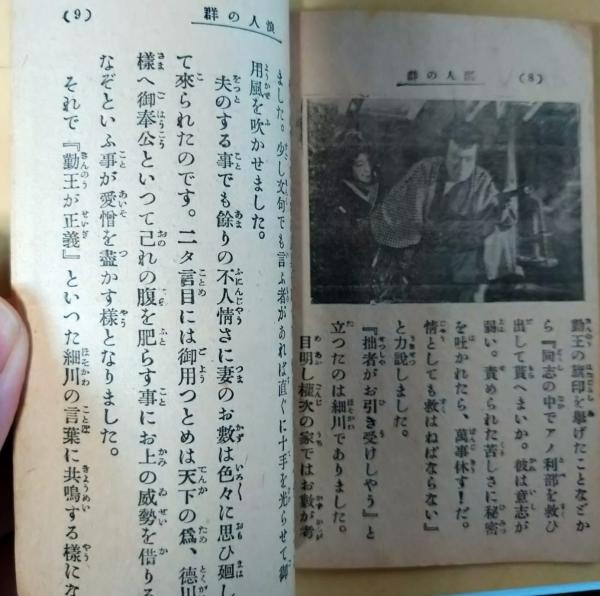 (8) 浪人の群
勤王の旗印を擧げたことなどか
ら『同志の中でアノ利部を救ひ
出して貰へまいか。彼は意志が
弱い。責められた苦しさに秘密
を吐かれたら、萬事休す!だ。
情としても救はねばならない』
と力説しました。
『拙者がお引き受けしやう』と
立つたのは細川でありました。
目明し權次の家ではお數が考
浪人の群 (9)
ました。少し文句でも言ふ者があれば直ぐに十手を光らせて御
用風を吹かせました。
夫のする事でも餘りの不人情さに妻のお數は色々に思ひ廻し
て來られたのです。二タ言目には御用つとめは天下の爲、德川
樣へ御奉公といつて己れの腹を肥らす事にお上の威勢を借りる
なぞといふ事が愛憎を盡かす樣となりました。
それで『勤王が正義』といつた細川の言葉に共鳴する樣にな